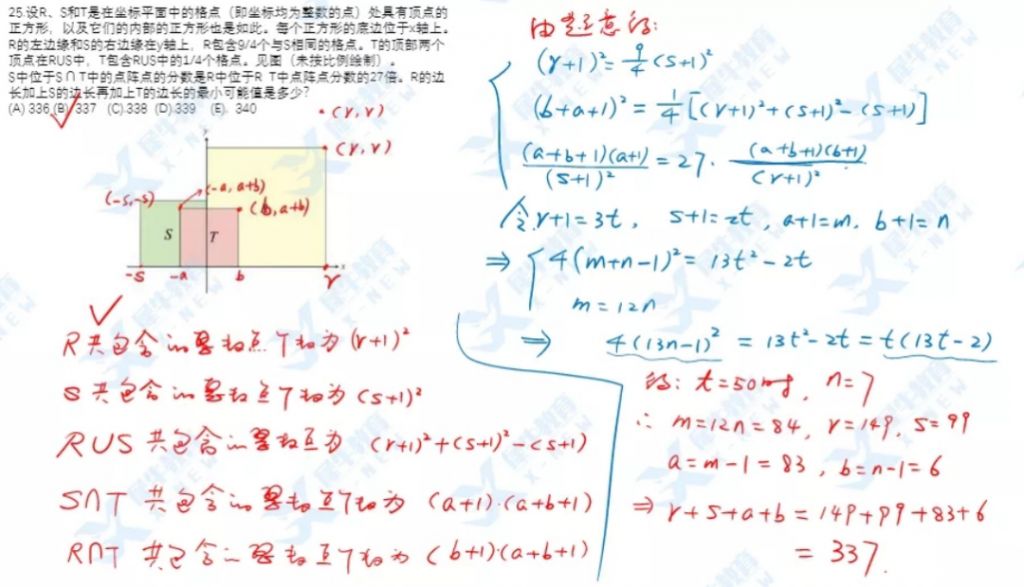 25.设R、S和T是在坐标平面中的格点（即坐标均为整数的点）处具有顶点的
正方形，以及它们的内部的正方形也是如此。每个正方形的底边位于x轴上。
R的左边缘和S的右边缘在y轴上，R包含9/4个与S相同的格点。T的顶部两个
顶点在RUS中，T包含RUS中的1/4个格点。见图（未按比例绘制）。
S中位于S∩T中的点阵点的分数是R中位于R T中点阵点分数的27倍。R的边
长加上S的边长再加上T的边长的最小可能值是多少?
(A) 336 (B) 337 (C).338 (D).339 (E). 340
(r,r)
(r,r)
(-s,-s)
(-a, a+b)
(b, a+b)
S
T
y
x
-s
-a
b
r
R共包含的整数点个数为(r+1)²
S共包含的整数点个数为(s+1)²
RUS共包含的整数点为 (r+1)²+(s+1)²-(s+1)
S∩T 共包含的整数点个数为 (a+1)·(a+b+1)
R∩T 共包含的整数点个数为 (b+1)·(a+b+1)
由题意得:
(r+1)²=9/4(s+1)²
(b+a+1)²=1/4[(r+1)²+(s+1)²-(s+1)]
(a+b+1)(a+1)/(s+1)²=27·(a+b+1)(b+1)/(r+1)²
令r+1=3t, s+1=2t, a+1=m, b+1=n
⇒ 4(m+n-1)²=13t²-2t
m=12n
⇒ 4(13n-1)²=13t²-2t=t(13t-2)
得: t=50 n=7
∴ m=12n=84, r=149, s=99
a=m-1=83, b=n-1=6
⇒ r+s+a+b=149+99+83+6
=337.
犀牛教育
X-NEW